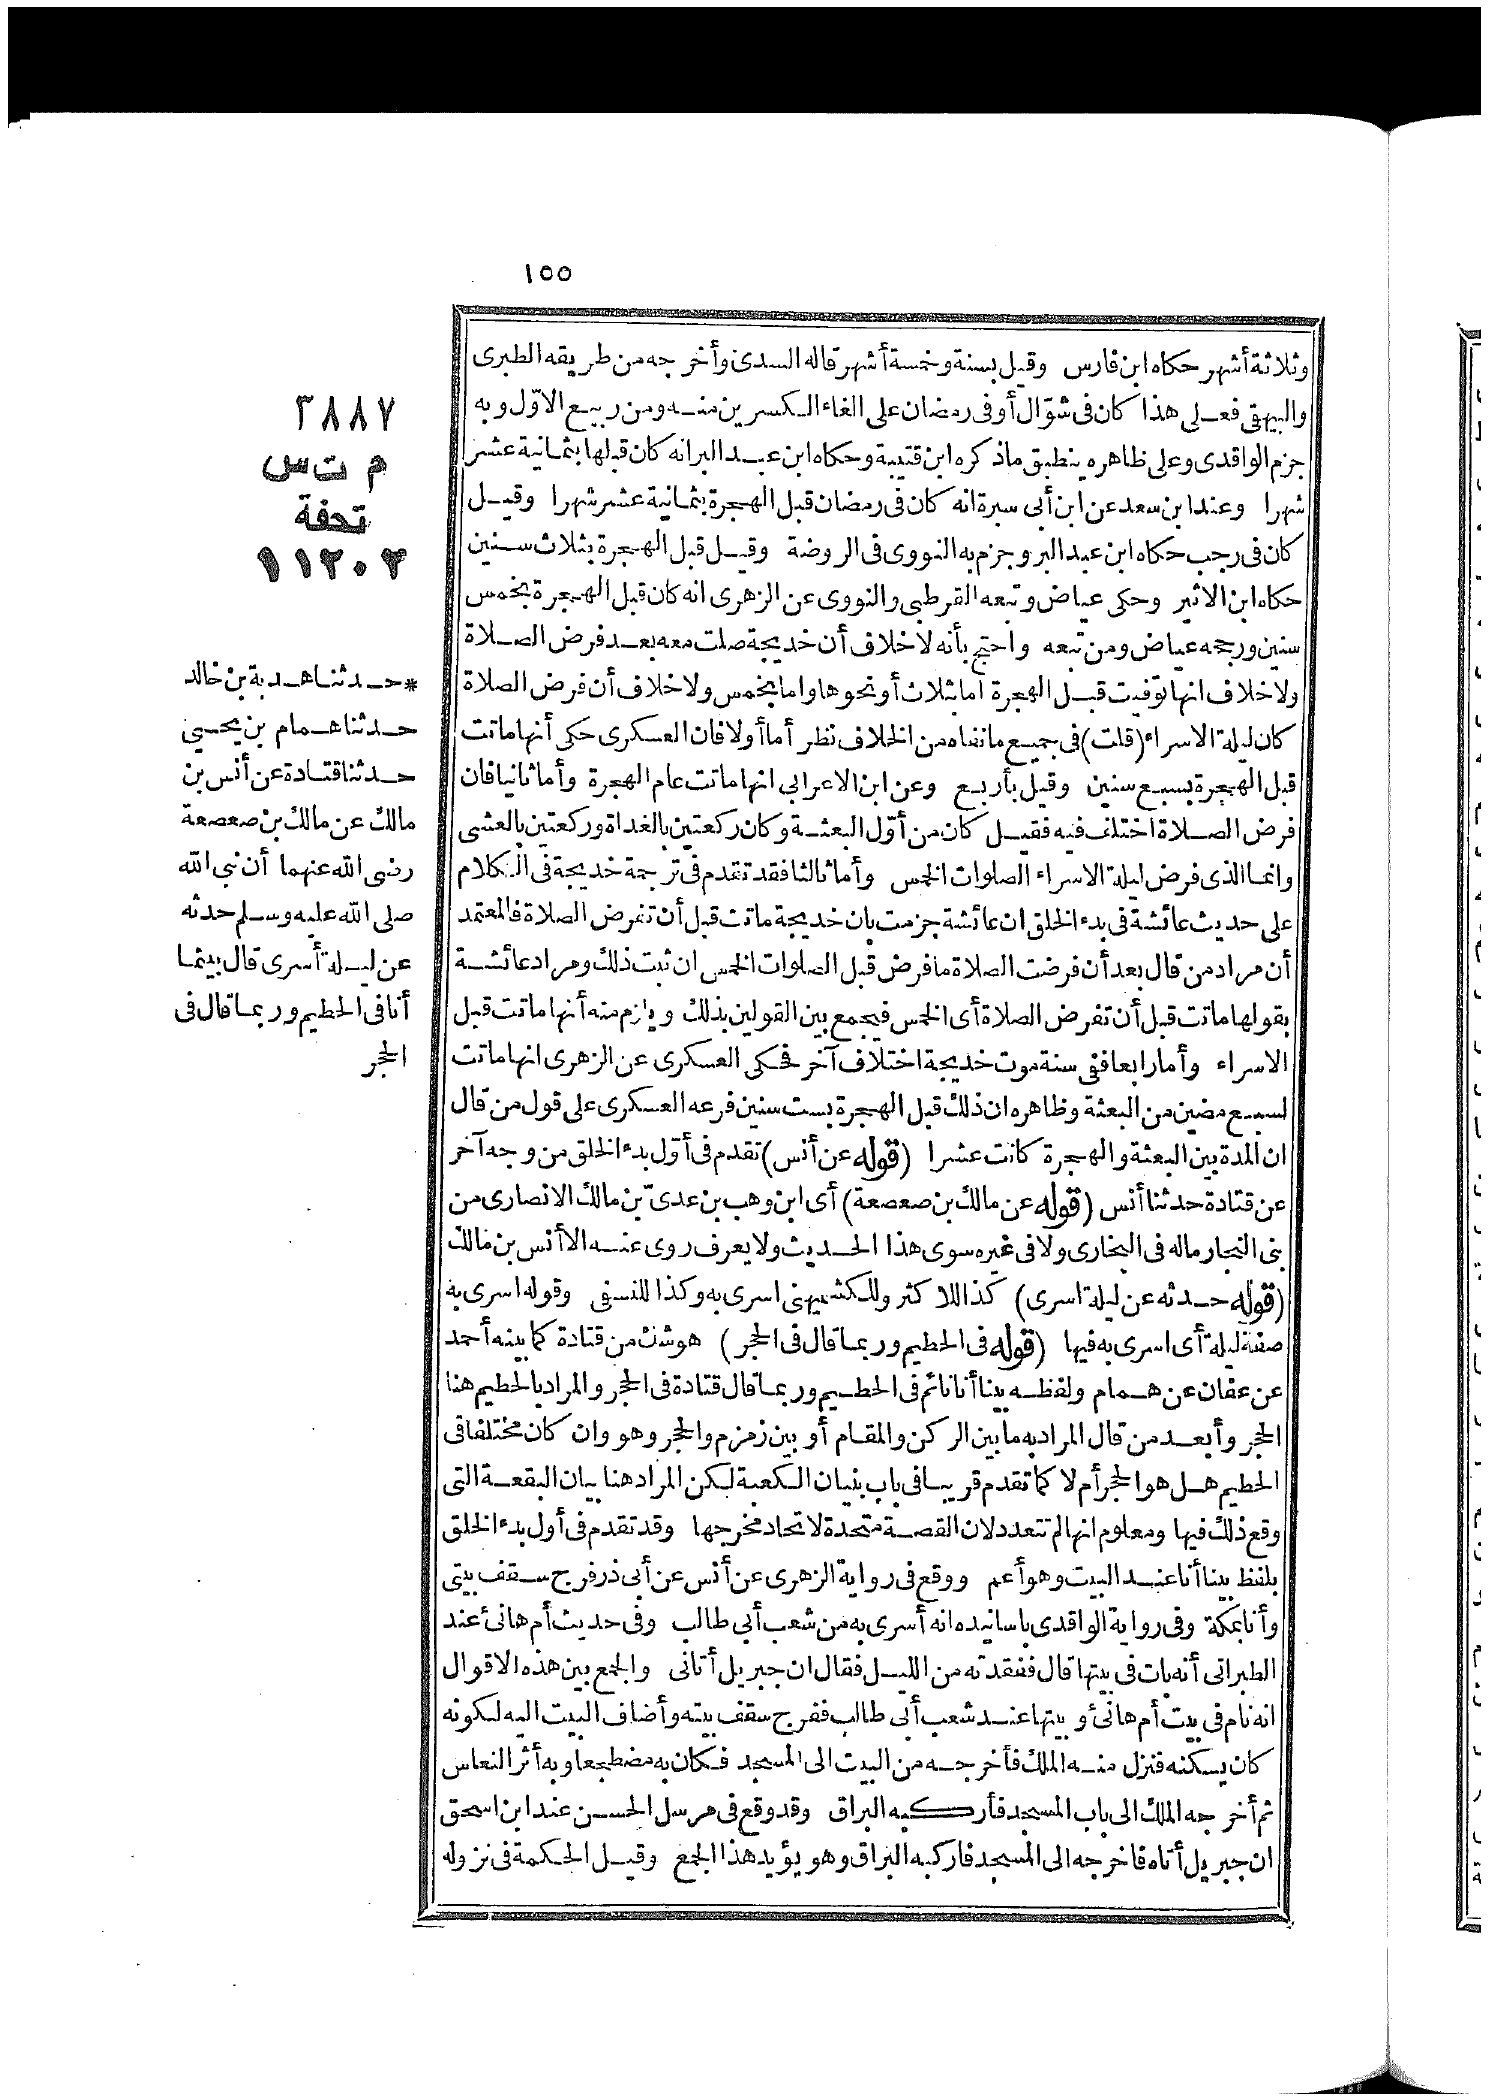 ١٥٥
وثلاثة أشهر حكاه ابن فارس وقيل بسنة وخمسة أشهر قاله السدى وأخرجه من طريقه الطبرى
والبيهقى فعلى هذا كان فى شوّال أو فى رمضان على الغاء الكسرين منه ومن ربيع الاوّل وبه
جزم الواقدى وعلى ظاهره ينطبق ماذكره ابن قتيبة وحكاه ابن عبد البر انه كان قبلها بثمانية عشر
شهرا وعند ابن سعد عن ابن أبى سبرة انه كان فى رمضان قبل الهجرة بثمانية عشر شهرا وقيل
كان فى رجب حكاه ابن عبد البر وجزم به النووى فى الروضة وقيل قبل الهجرة بثلاث سنين
حكاه ابن الاثير وحكى عياض وتبعه القرطبى والنووى عن الزهرى انه كان قبل الهجرة بخمس
سنين ورجحه عياض ومن تبعه واحتج بأنه لاخلاف أن خديجة صلت معه بعد فرض الصلاة
ولا خلاف انها توفيت قبل الهجرة اما بثلاث أو نحوها واما بخمس ولا خلاف أن فرض الصلاة
كان ليلة الاسراء (قلت) فى جميع مانفاه من الخلاف نظر أما أولا فان العسكرى حكى أنها ماتت
قبل الهجرة بسبع سنين وقيل بأربع وعن ابن الاعرابى انها ماتت عام الهجرة وأما ثانيا فان
فرض الصلاة اختلف فيه فقيل كان من أوّل البعثة وكان ركعتين بالغداة وركعتين بالعشى
وانما الذى فرض ليلة الاسراء الصلوات الخمس وأما ثالثا فقد تقدم فى ترجمة خديجة فى الكلام
على حديث عائشة فى بدء الخلق ان عائشة جزمت بان خديجة ماتت قبل أن تفرض الصلاة فالمعتمد
أن مراد من قال بعد أن فرضت الصلاة مافرض قبل الصلوات الخمس ان ثبت ذلك ومراد عائشة
بقولها ماتت قبل أن تفرض الصلاة أى الخمس فيجمع بين القولين بذلك ويلزم منه أنها ماتت قبل
الاسراء وأما رابعا ففى سنة موت خديجة اختلاف آخر فحكى العسكرى عن الزهرى انها ماتت
لسبع مضين من البعثة وظاهره ان ذلك قبل الهجرة بست سنين فرعه العسكرى على قول من قال
ان المدة بين البعثة والهجرة كانت عشرا (قوله عن أنس) تقدم فى أوّل بدء الخلق من وجه آخر
عن قتادة حدثنا أنس (قوله عن مالك بن صعصعة) أى ابن وهب بن عدىّ بن مالك الانصارى من
بنى النجار ماله فى البخارى ولا فى غيره سوى هذا الحديث ولا يعرف روى عنه الا أنس بن مالك
(قوله حدثه عن ليلة اسرى) كذا للاكثر وللكشميهنى اسرى به وكذا للنسفى وقوله اسرى به
صفة ليلة أى اسرى به فيها (قوله فى الحطيم وربما قال فى الحجر) هو شك من قتادة كما بينه أحمد
عن عفان عن همام ولفظه بينا أنا نائم فى الحطيم وربما قال قتادة فى الحجر والمراد بالحطيم هنا
الحجر وأبعد من قال المراد به مابين الركن والمقام أو بين زمزم والحجر وهو وان كان مختلفا فى
الحطيم هل هو الحجر أم لا كما تقدم قريبا فى باب بنيان الكعبة لكن المراد هنا بيان البقعة التى
وقع ذلك فيها ومعلوم انها لم تتعدد لان القصة متحدة لاتحاد مخرجها وقد تقدم فى أول بدء الخلق
بلفظ بينا أنا عند البيت وهو أعم ووقع فى رواية الزهرى عن أنس عن أبى ذر فرج سقف بيتى
وأنا بمكة وفى رواية الواقدى باسانيده انه أسرى به من شعب أبى طالب وفى حديث أم هانئ عند
الطبرانى أنه بات فى بيتها قال ففقدته من الليل فقال ان جبريل أتانى والجمع بين هذه الاقوال
انه نام فى بيت أم هانئ وبيتها عند شعب أبى طالب ففرج سقف بيته وأضاف البيت اليه لكونه
كان يسكنه فنزل منه الملك فأخرجه من البيت الى المسجد فكان به مضطجعا وبه أثر النعاس
ثم أخرجه الملك الى باب المسجد فأركبه البراق وقد وقع فى مرسل الحسن عند ابن اسحق
ان جبريل أتاه فاخرجه الى المسجد فاركبه البراق وهو يؤيد هذا الجمع وقيل الحكمة فى نزوله
٣٨٨٧
م ت س
تحفة
١١٢٠٢
*حدثنا هدبة بن خالد
حدثنا همام بن يحيى
حدثنا قتادة عن أنس بن
مالك عن مالك بن صعصعة
رضى الله عنهما أن نبى الله
صلى الله عليه وسلم حدثه
عن ليلة أسرى قال بينما
أنا فى الحطيم وربما قال فى
الحجر